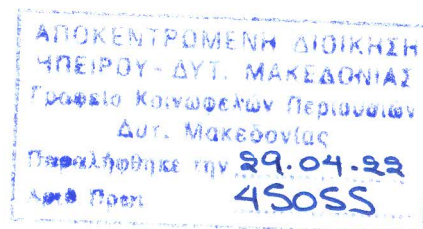 ΑΠΟΚΕΝΤΡΩΜΕΝΗ ΔΙΟΙΚΗΣΗ
ΗΠΕΙΡΟΥ - ΔΥΤ. ΜΑΚΕΔΟΝΙΑΣ
Γραφείο Κοινωφελών Περιουσιών
Δυτ. Μακεδονίας
Παραλήφθηκε την 29.04.22
Αριθ Πρωτ 45055